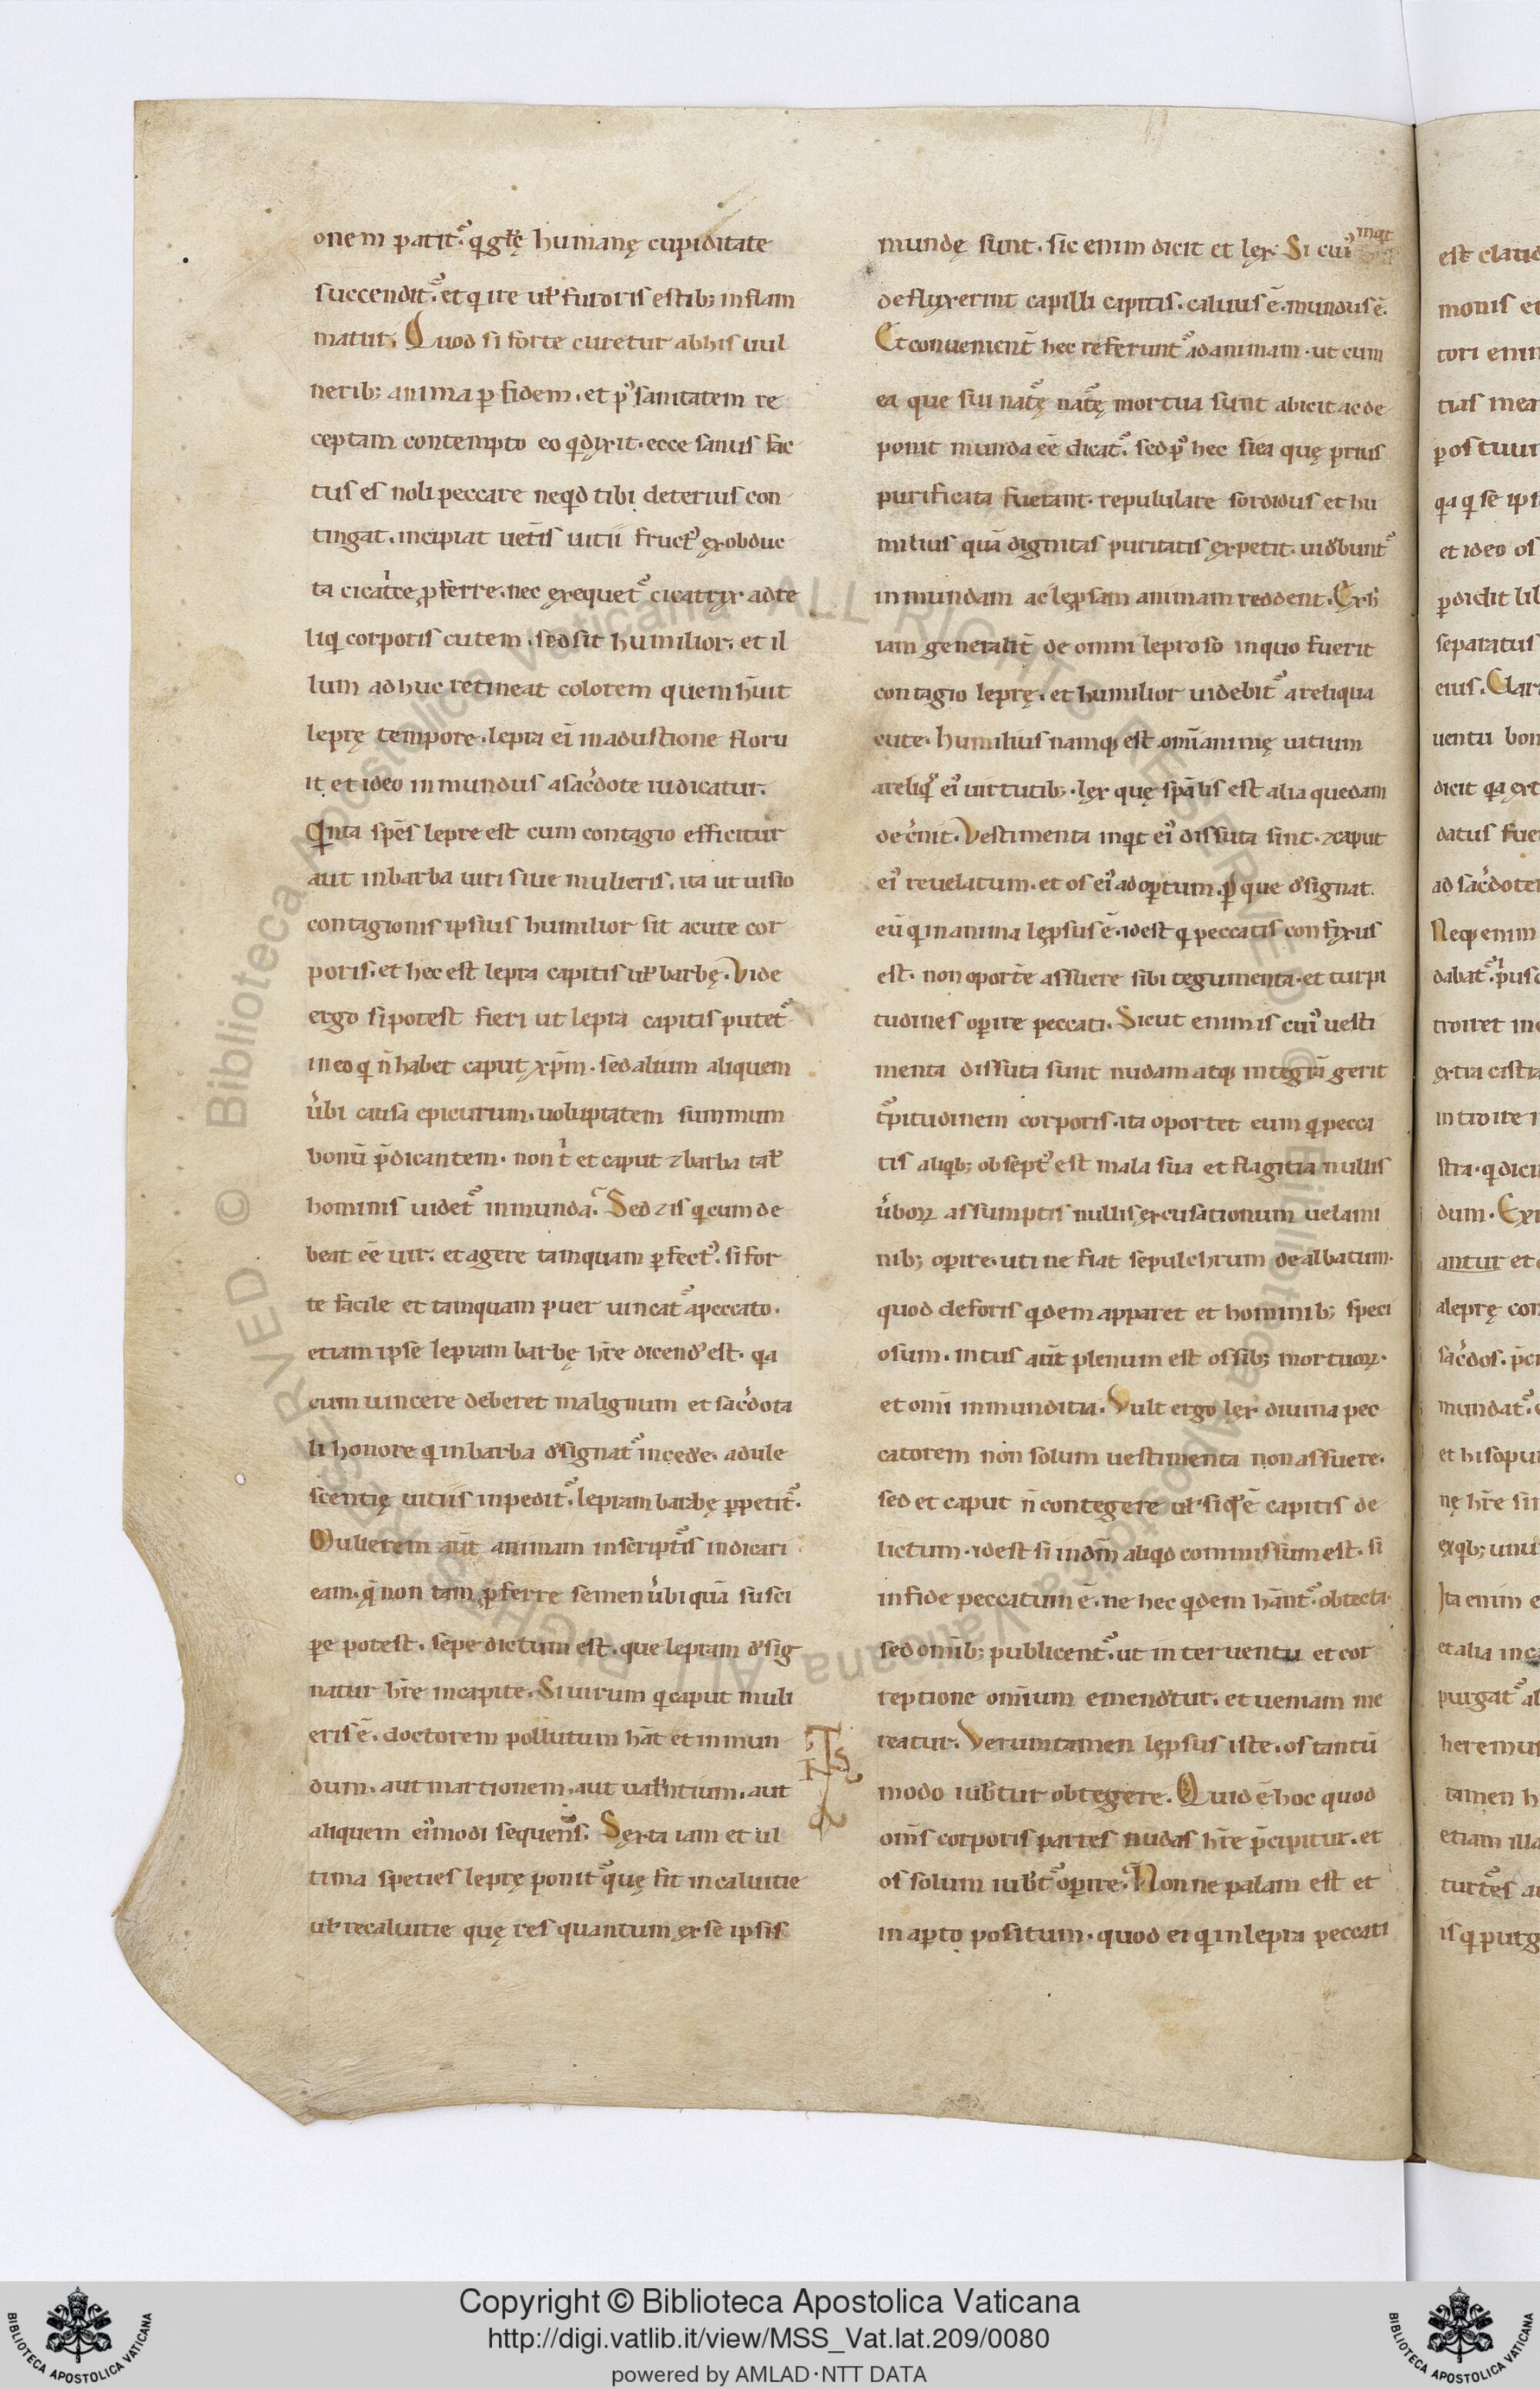 onem patit᷑. q̇ gł'ę humanę cupiditate
succendit᷑. et q ire uł furoris estib; inflam
matur. Quod si forte curetur ab his uul
nerib; anima ꝑ fidem. et pꝰ sanitatem re
ceptam contempto eo qd̓ dixit. ecce sanus fac
tus es noli peccare neqd̓ tibi deterius con
tingat. incipiat uet̓is uitii fructꝰ ex obduc
ta cicat̓ce ꝓferre. nec exequet᷑ cicatrix ad re
liq̇ corporis cutem. sed sit humilior. et il
lum adhuc retineat colorem quem h̅uit
leprę tempore. lepra ei̅ in adustione floru
it et ideo inmundus a sac̓dote iudicatur.
Qinta sp̅es lepre est cum contagio efficitur
aut in barba uiri siue mulieris. ita ut uisio
contagionis ipsius humilior sit a cute cor
poris. et hec est lepra capitis uł barbę. Vide
ergo si potest fieri ut lepra capitis putet᷑
in eo q̇ n̅ habet caput xp̅m. sed alium aliquem
u̓bi causa epicurum. uoluptatem summum
bonu̅ p̅dicantem. non t̓ et caput ⁊ barba tal̓
hominis uidet᷑ inmunda. Sed ⁊ is q̇ cum de
beat e̅e uir. et agere tamquam ꝑfectꝰ. si for
te facile et tamquam puer uincat᷑ a peccato.
etiam ipse lepram barbę h̅re dicendꝰ est. qa
cum uincere deberet malignum et sac̓dota
li honore q̇ in barba d̓signat᷑ incede̓. adule
scentię uitiis inpedit᷑. lepram barbę ꝑpetit᷑.
Mulierem aut̅ animam in script̓is indicari
eam. q̅ non tam ꝓferre semen u̓bi qua̅ susci
ꝑe potest. sepe dictum est. que lepram d̓sig
natur h̅re in capite. Si uirum q̇ caput muli
eris e̅. doctorem pollutum h̅at et inmun
dum. aut martionem. aut ual̓ntium. aut
aliquem eiꝰmodi sequens. Sexta iam et ul
tima speties leprę ponit᷑ quę fit in caluitie
uł recaluitie quę res quantum ex se ipsis
mundę sunt. sic enim dicit et lex. Si cuiꝰ inqt
defluxerint capilli capitis. caluus e̅. mundus e̅.
Et conuenient̓ hec referunt᷑ ad animam. ut cum
ea que sui nat̓ę nat̓ę mortua sunt abicit ac de
ponit munda e̅e dicat᷑. sed pꝰ hec si ea quę prius
purificata fuerant. repululare sordidus et hu
milius qua̅ dignitas puritatis expetit. uid̓bunt᷑
inmundam ac lepsam animam reddent. Ex h̓
iam generalit̓ de omni leproso in quo fuerit
contagio leprę. et humilior uidebit᷑ a reliqua
cute. humilius namq; est omi̅ animę uitium
a reliqꝰ eiꝰ uirtutib;. lex quę sp̅alis est alia quedam
dec̓nit. Vestimenta inqt eiꝰ dissuta sint. ⁊ caput
eiꝰ reuelatum. et os eiꝰ adoꝑtum. ꝑ que d̓signat
eu̅ q̇ in anima lepsus e̅. idest q̇ peccatis confixus
est. non oporte̅ assuere sibi tegumenta. et turpi
tudines oꝑire peccati. Sicut enim is cuiꝰ uesti
menta dissuta sunt nudam atq; integra̅ gerit
t᷑pitudinem corporis. ita oportet eum q̇ pecca
tis aliqb; obseptꝰ est mala sua et flagitia nullis
u̓boꝝ assumptis nullis excusationum uelami
nib; oꝑire. uti ne fiat sepulchrum dealbatum.
quod deforis q̇dem apparet et hominib; speci
osum. intus aut̅ plenum est ossib; mortuoꝝ.
et omi̅ inmunditia. Vult ergo lex diuina pec
catorem non solum uestimenta non assuere.
sed et caput n̅ contegere uł siqd̓ e̅ capitis de
lictum. idest si in dm̅ aliqd̓ commissum est. si
in fide peccatum e̅. ne hec q̇dem h̅ant᷑ obtecta.
sed omi̅b; publicent᷑. ut interuentu et cor
reptione omi̅um emend̓tur. et ueniam me
reatur. Verumtamen lepsus iste. os tantu̅
modo iub̓tur obtegere. Quid e̅ hoc quod
om̅s corporis partes nudas h̅re p̅cipitur. et
os solum iub̓t᷑ oꝑire. Nonne palam est et
in aꝑto positum. quod ei q̇ in lepra peccati
est
monis et
tori enim
postuu
et ideo os
ꝑdidit
separatus
eius. Clar
uentu bon
ad sac̓dote
Neq; enim
extra castra
introire
dum. Ex
antur et
a leprę con
sac̓dos.
mundat᷑.
et hisopu
Ita enim e
et alia inc
purgat᷑ a
heremu
tamen h
etiam illa
is q̇ purg
ALL RIGHTS RESERVED © Biblioteca Apostolica Vaticana
ALL RIGHTS RESERVED © Biblioteca Apostolica Vaticana
BIBLIOTECA APOSTOLICA VATICANA
Copyright © Biblioteca Apostolica Vaticana
http://digi.vatlib.it/view/MSS_Vat.lat.209/0080
powered by AMLAD·NTT DATA
BIBLIOTECA APOSTOLICA VATICANA